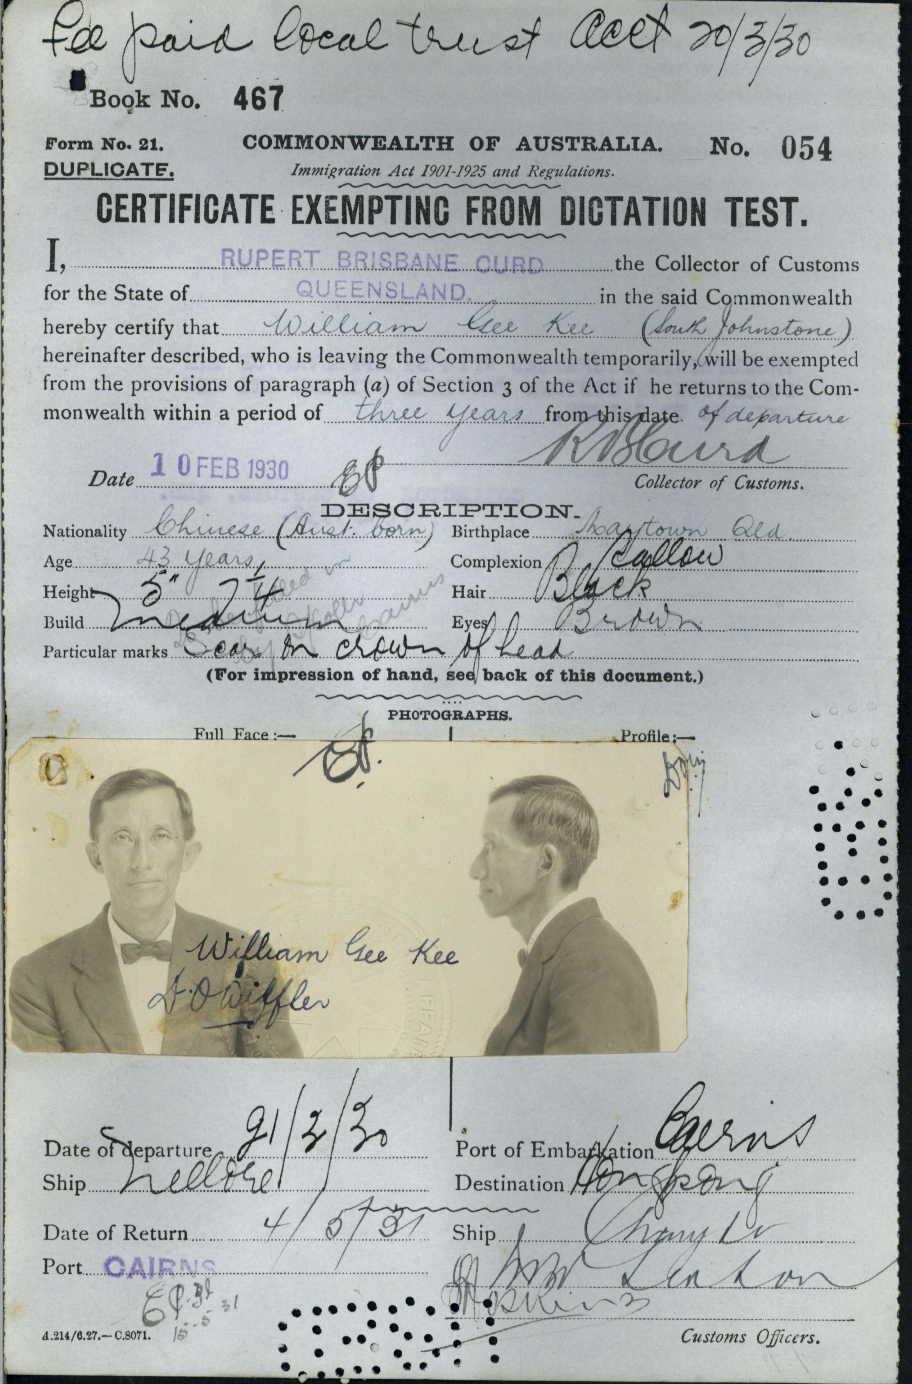 Fee paid local trust Acct 20/3/30
Book No. 467
Form No. 21. COMMONWEALTH OF AUSTRALIA. No. 054
DUPLICATE. Immigration Act 1901-1925 and Regulations.
CERTIFICATE EXEMPTING FROM DICTATION TEST.
I, RUPERT BRISBANE CURD the Collector of Customs
for the State of QUEENSLAND. in the said Commonwealth
hereby certify that William Gee Kee (South Johnstone)
hereinafter described, who is leaving the Commonwealth temporarily, will be exempted
from the provisions of paragraph (a) of Section 3 of the Act if he returns to the Com-
monwealth within a period of three years from this date of departure
R B Curd
Date 10 FEB 1930 Collector of Customs.
DESCRIPTION.
Nationality Chinese (Aust. born) Birthplace Maytown Qld.
Age 43 years Complexion Sallow
Height 5" 7 1/4 Hair Black
Build medium Eyes Brown
Particular marks Scar on crown of head
(For impression of hand, see back of this document.)
PHOTOGRAPHS.
Full Face :— Profile :—
William Gee Kee
Date of departure 21/3/30 Port of Embarkation Cairns
Ship Nellore Destination Hongkong
Date of Return 4/5/31 Ship
Port CAIRNS
A.214/6.27.—C.8071. Customs Officers.